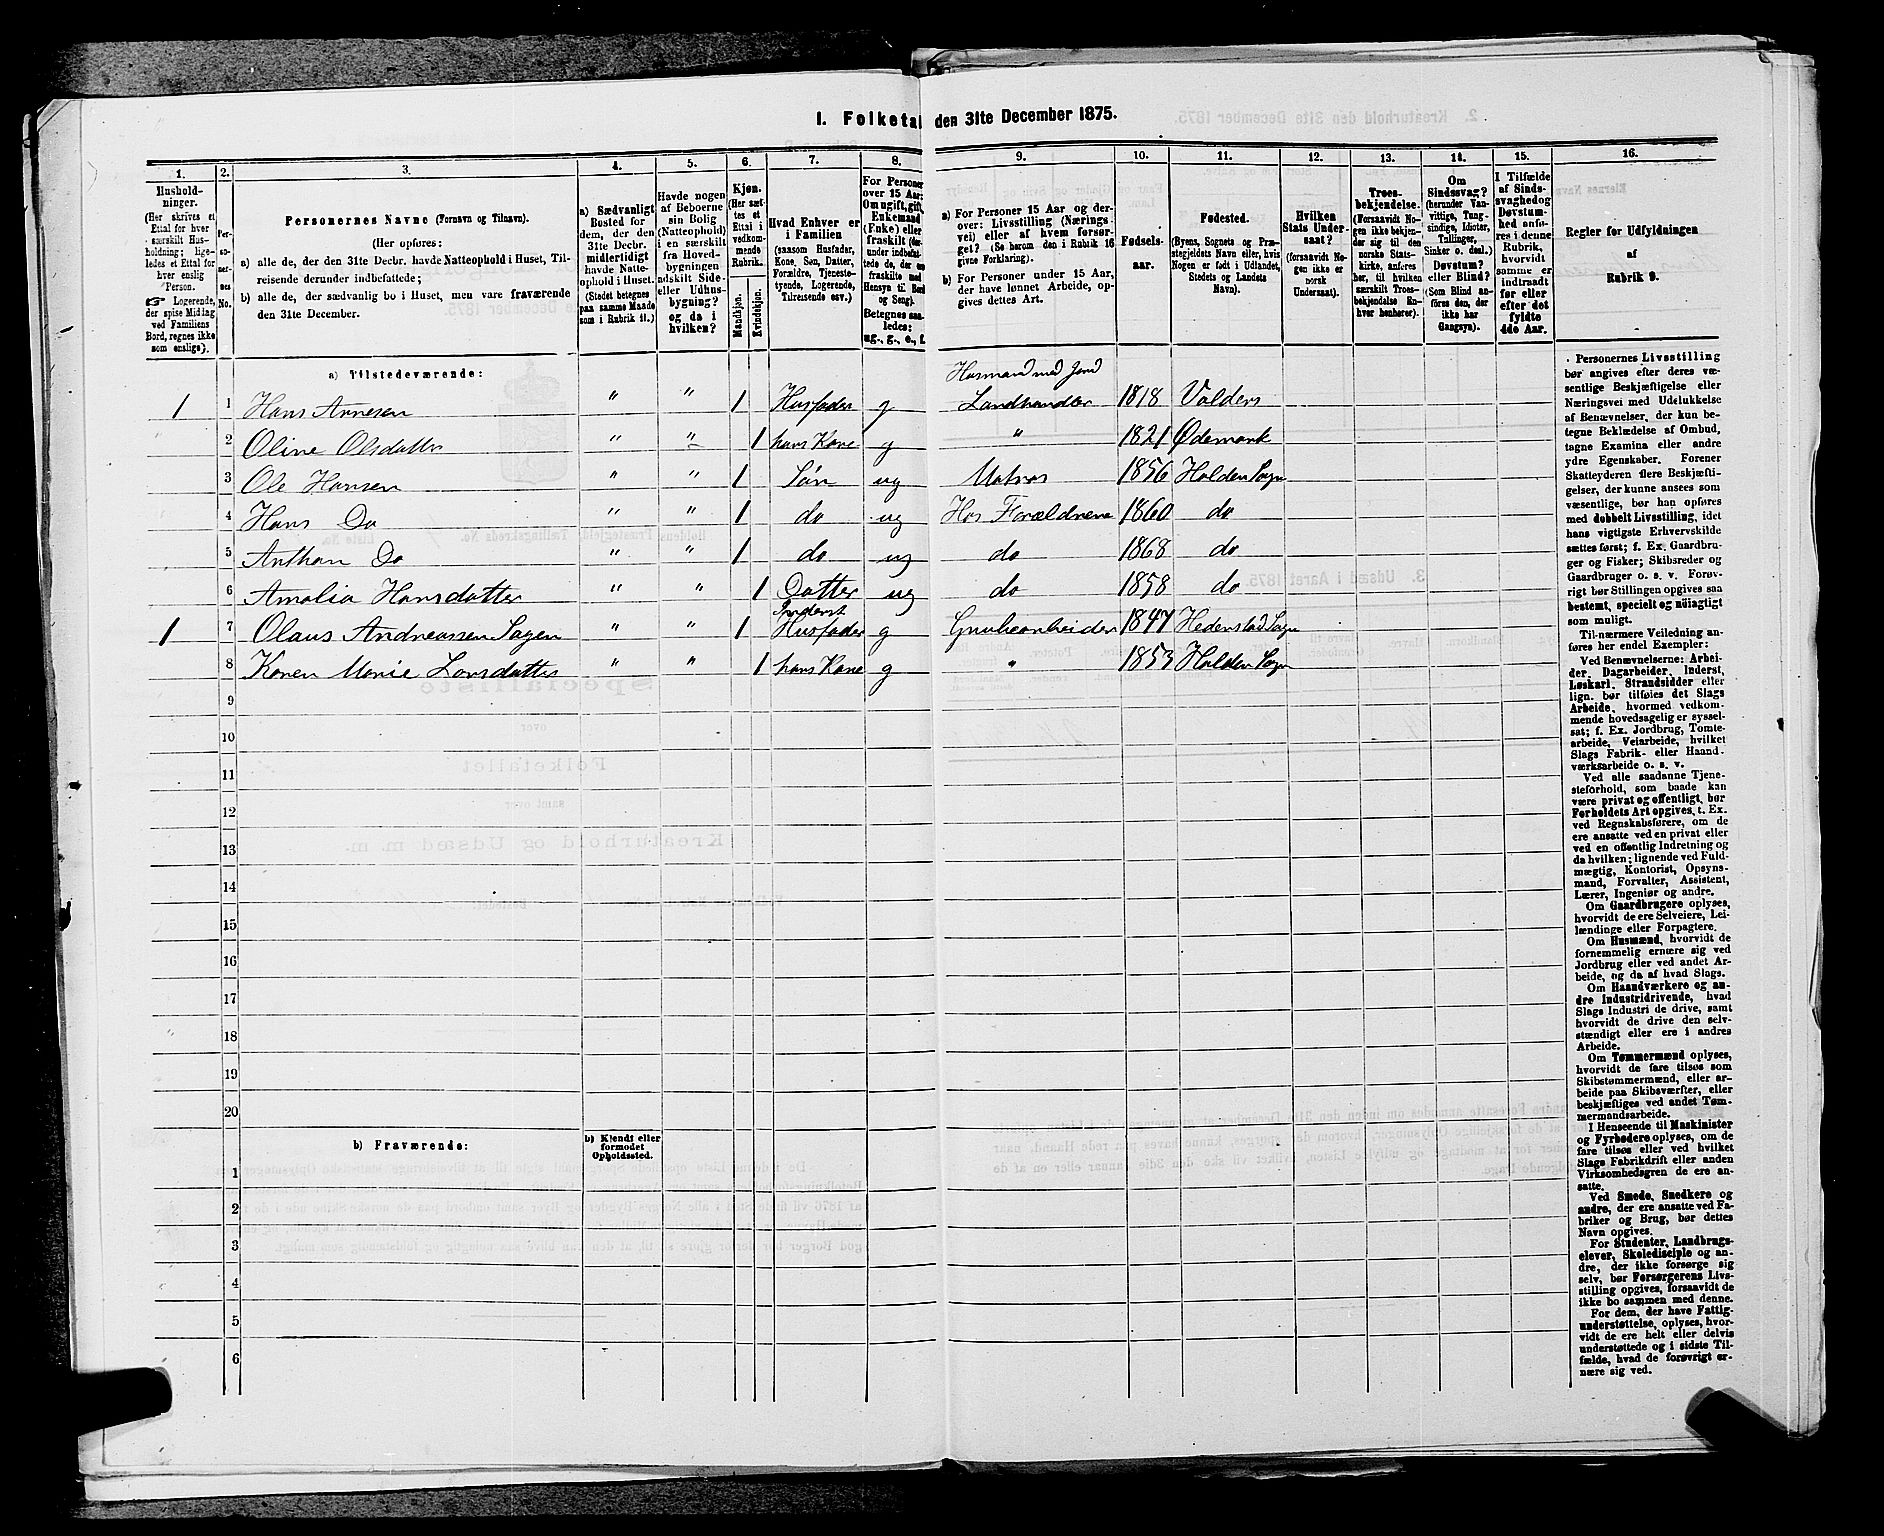 I. Folketal den 31te December 1875.
1. 2. 3. 4. 5. 6. 7. 8. 9. 10. 11. 12. 13. 14. 15. 16.
Hushold-
ninger.
(Her skrives et
Ettal for hver
særskilt Hus-
holdning; lige-
ledes et Ettal for
hver enslig
Person.
☞ Logerende,
der spise Middag
ved Familiens
Bord, regnes ikke
som enslige).
Per-
so-
ner-
nes
No.
Personernes Navne (Fornavn og Tilnavn).
(Her opføres:
a) alle de, der den 31te Decbr. havde Natteophold i Huset, Til-
reisende derunder indbefattede;
b) alle de, der sædvanlig bo i Huset, men vare fraværende
den 31te December.
a) Sædvanligt
Bosted for
dem, der den
31te Decbr.
midlertidigt
havde Natte-
ophold i Huset.
(Stedet betegnes
paa samme Maade
som i Rubrik 11.)
Havde nogen
af Beboerne
sin Bolig
(Natteophold)
i en særskilt
fra Hoved-
bygningen
adskilt Side-
eller Udhus-
bygning?
og da i
hvilken?
Kjøn.
(Her sæt-
tes et
Ettal i
vedkom-
mende
Rubrik.)
Mandkjøn.
Kvindekjøn.
Hvad Enhver er
i Familien
(saasom Husfader,
Kone, Søn, Datter,
Forældre, Tjeneste-
tyende, Logerende,
Tilreisende osv.)
For Personer
over 15 Aar:
Om ugift, gift,
Enkemand
(Enke) eller
fraskilt (der-
under indbefat-
tede de, der ere
fraskilte med
Hensyn til Bord
og Seng).
Betegnes saa-
ledes:
ug., g., e., f.
a) For Personer 15 Aar og der-
over: Livsstilling (Nærings-
vei) eller af hvem forsør-
get? (Se herom den i Rubrik 16
givne Forklaring).
b) For Personer under 15 Aar,
der have lønnet Arbeide, op-
gives dettes Art.
Fødsels-
aar.
Fødested.
(Byens, Sognets og Præ-
stegjeldets Navn eller, hvis
Nogen er født i Udlandet,
Stedets og Landets
Navn).
Hvilken
Stats Under-
saat?
(forsaavidt No-
gen ikke er
norsk
Undersaat).
Troes-
bekjendelse.
(Forsaavidt No-
gen ikke bekjen-
der sig til den
norske Stats-
kirke, anføres
her, til hvilken
særskilt Troes-
bekjendelse En-
hver henhører).
Om
Sindssvag?
(herunder Van-
vittige, Tung-
sindige, Idioter,
Tullinger,
Sinker o. desl.)
Døvstum?
eller Blind?
(Som Blind an-
føres den, der
ikke har
Gangsyn).
I Tilfælde
af Sinds-
svaghed og
Døvstum-
hed anfø-
res i denne
Rubrik,
hvorvidt
samme er
indtraadt
før eller
efter det
fyldte
4de Aar.
Regler for Udfyldningen
af
Rubrik 9.
a) Tilstedeværende:
Husmand med Jord
1 1 Hans Arnesen " " 1 Husfader g Landhandler 1818 Valders
2 Oline Olsdatter " " 1 hans Kone g " 1821 Ødemark
3 Ole Hansen " " 1 Søn ug Matros 1856 Holden Sogn
4 Hans Do " " 1 do ug Hos Forældrene 1860 do
5 Anthon Do " " 1 do ug do 1868 do
6 Amalia Hansdatter " " 1 Datter ug do 1858 do
Inderst
1 7 Olaus Andreassen Sagen " " 1 Husfader g Grubearbeider 1847 Hedenstad Sogn
8 Karen Marie Larsdatter " " 1 hans Kone g " 1853 Holden Sogn
9
10
11
12
13
14
15
16
17
18
19
20
b) Fraværende:
b) Kjendt eller
formodet
Opholdssted.
1
2
3
4
5
6
Personernes Livsstilling
bør angives efter deres væ-
sentlige Beskjæftigelse eller
Næringsvei med Udelukkelse
af Benævnelser, der kun be-
tegne Beklædelse af Ombud,
tagne Examina eller andre
ydre Egenskaber. Forener
Skatteyderen flere Beskjæfti-
gelser, der kunne ansees som
væsentlige, bør han opføres
med dobbelt Livsstilling, idet
hans vigtigste Erhvervskilde
sættes først; f. Ex. Gaardbru-
ger og Fisker; Skibsreder og
Gaardbruger o. s. v. Forøv-
rigt bør Stillingen opgives saa
bestemt, specielt og nøiagtigt
som muligt.
Til nærmere Veiledning an-
føres her endel Exempler:
Ved Benævnelserne: Arbei-
der, Dagarbeider, Inderst,
Løskarl, Strandsidder eller
lign. bør tilføies det Slags
Arbeide, hvormed vedkom-
mende hovedsagelig er syssel-
sat; f. Ex. Jordbrug, Tomte-
arbeide, Veiarbeide, hvilket
Slags Fabrik- eller Haand-
værksarbeide o. s. v.
Ved alle saadanne Tjene-
steforhold, som baade kan
være privat og offentligt, bør
Forholdets Art opgives, t. Ex.
ved Regnskabsførere, om de
ere ansatte ved en privat eller
ved en offentlig Indretning og
da hvilken; lignende ved Fuld-
mægtig, Kontorist, Opsyns-
mand, Forvalter, Assistent,
Lærer, Ingeniør og andre.
Om Gaardbrugere oplyses,
hvorvidt de ere Selveiere, Lei-
lændinge eller Forpagtere.
Om Husmænd, hvorvidt de
fornemmelig ernære sig ved
Jordbrug eller ved andet Ar-
beide, og da af hvad Slags.
Om Haandværkere og an-
dre Industridrivende, hvad
Slags Industri de drive, samt
hvorvidt de drive den selv-
stændigt eller ere i andres
Arbeide.
Om Tømmermænd oplyses,
hvorvidt de fare tilsøs som
Skibstømmermænd, eller ar-
beide paa Skibsværfter, eller
beskjæftiges ved andet Tøm-
mermandsarbeide.
I Henseende til Maskinister
og Fyrbødere oplyses, om de
fare tilsøs eller ved hvilket
Slags Fabrikdrift eller anden
Virksomhedsgren de ere an-
satte.
Ved Smede, Snedkere og
andre, der ere ansatte ved Fa-
briker og Brug, bør dettes
Navn opgives.
For Studenter, Landbrugs-
elever, Skoledisciple og an-
dre, der ikke forsørge sig
selv, bør Forsørgerens Livs-
stilling opgives, forsaavidt de
ikke bo sammen med denne.
For dem, der have Fattig-
understøttelse, oplyses, hvor-
vidt de ere helt eller delvis
understøttede og i sidste Til-
fælde, hvad de forøvrigt er-
nære sig ved.